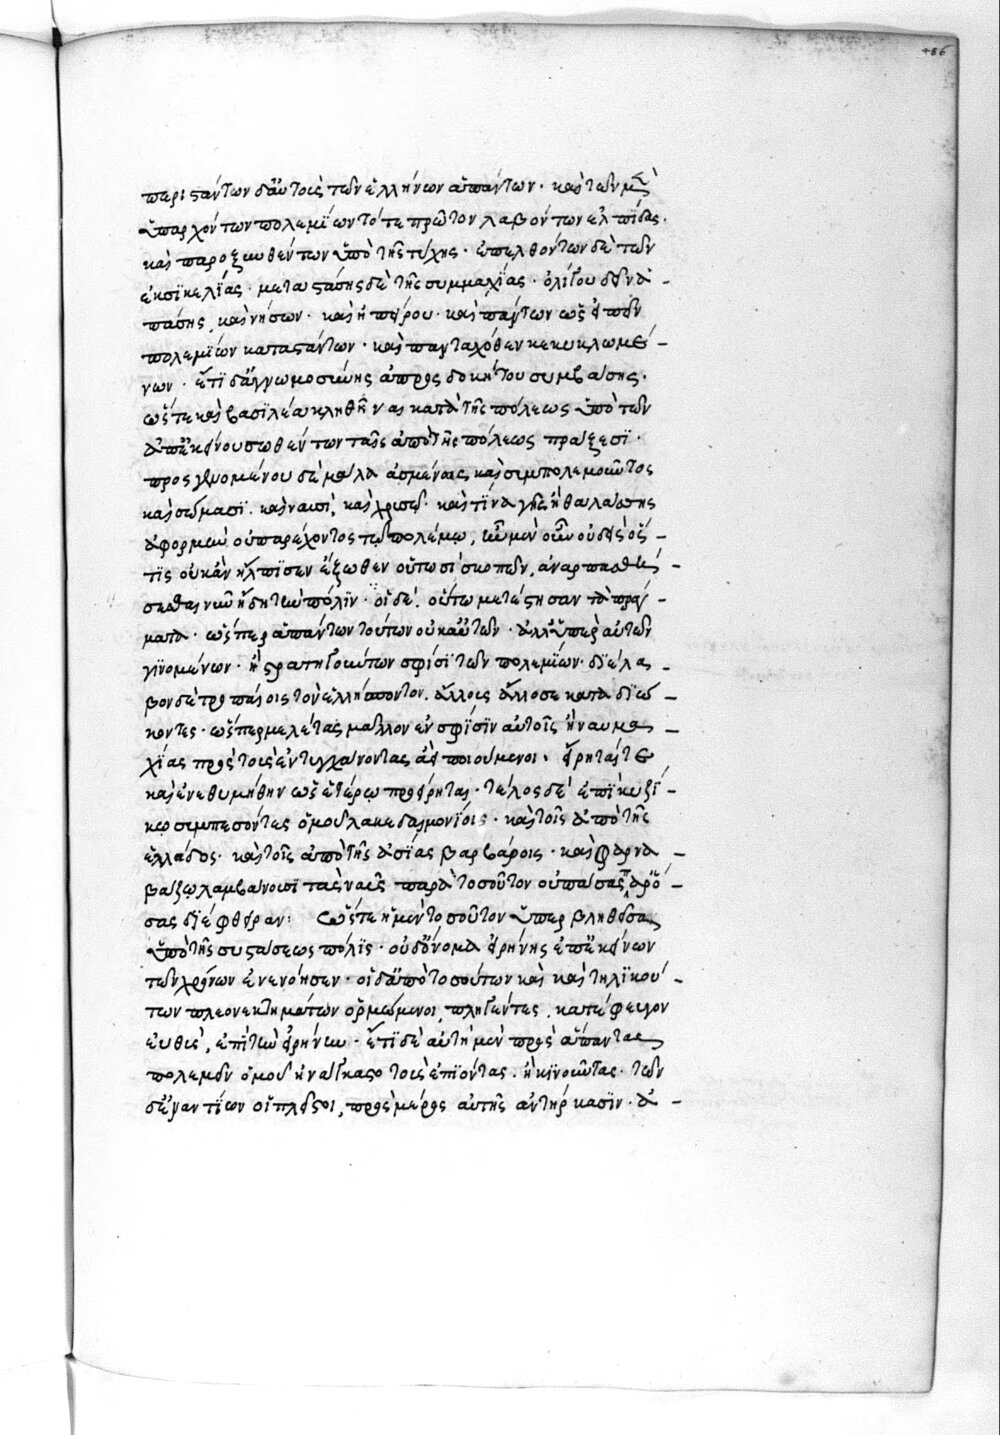 486
περιστάντων δ' αὐτοὺς τῶν ἑλλήνων ἁπάντων · καὶ τῶν μὲν
ὑπαρχόντων πολεμίων τότε πρῶτον λαβόντων ἐλπίδας ·
καὶ παροξυνθέντων ὑπὸ τῆς τύχης · ἐπελθόντων δὲ τῶν
ἐκ σικελίας · μεταστάσης δὲ τῆς συμμαχίας · ὀλίγου δεῖν ἁ –
πάσης, καὶ νήσων · καὶ ἠπείρου · καὶ πάντων ὡς εἰπεῖν
πολεμίων καταστάντων · καὶ πανταχόθεν κεκυκλωμέ –
νων · ἔτι δ' ἀγνωμοσύνης ἀπροσδοκήτου συμβάσης ·
ὥστε καὶ βασιλέα κληθῆναι κατὰ τῆς πόλεως ὑπὸ τῶν
ἀπ' ἐκείνου σωθέντων ταῖς ἀπὸ τῆς πόλεως πράξεσι ·
προσγενομένου δὲ μάλα ἀσμένως καὶ συμπολεμοῦντος
καὶ σώμασι · καὶ ναυσὶ, καὶ χρυσῷ · καὶ τίνα γῆς ἢ θαλάσσης
ἀφορμὴν οὐ παρέχοντος τῷ πολέμῳ, ὧν μὲν οὖν οὐδεὶς ὅς –
τις οὐκ ἂν ἤλπισεν ἔξωθεν οὑτωσὶ σκοπῶν, ἀναρπασθή –
σεσθαι νῦν ἤδη τὴν πόλιν · οἱ δὲ, οὕτω μετέστησαν τὰ πράγ –
ματα · ὥσπερ ἁπάντων τούτων οὐ κατ' αὐτῶν · ἀλλ' ὑπὲρ αὐτῶν
γινομένων · ἢ στρατηγούντων σφίσι τῶν πολεμίων · διέλα –
βον δὲ τροπαίοις τὸν ἑλλήσποντον, ἄλλοις ἄλλοσε καταδιώ –
κοντες · ὥσπερ μελέτας μᾶλλον ἐν σφίσιν αὐτοῖς ἢ ναυμα –
χίας πρὸς τοὺς ἐντυγχάνοντας ἀεὶ ποιούμενοι · εἴρηταί τε
καὶ ἐνεθυμήθην ὡς ἑτέρῳ προείρηται · τέλος δὲ ἐπὶ κυζί –
κῳ συμπεσόντες ὁμοῦ λακεδαιμονίοις · καὶ τοῖς ἀπὸ τῆς
ἑλλάδος · καὶ τοῖς ἀπὸ τῆς ἀσίας βαρβάροις · καὶ φαρνα –
βάζῳ λαμβάνουσι τὰς ναῦς παρὰ τοσοῦτον οὐ πάσας παρ' ὅ –
σας διέφθειραν: Ὥστε ἡ μὲν τοσοῦτον ὑπερβληθεῖσα
ὑπὸ τῆς συστάσεως πόλις · οὐδ' ὄνομα εἰρήνης ἐπ' ἐκείνων
τῶν χρόνων ἐνενόησεν · οἱ δ' ἀπὸ τοσούτων καὶ καὶ τηλικού –
των πλεονεκτημάτων ὁρμώμενοι, πληγέντες, κατέφευγον
εὐθὺς, ἐπὶ τὴν εἰρήνην · ἔτι δὲ αὐτὴ μὲν πρὸς ἅπαντας
πολεμεῖν ὁμοῦ ἠνάγκασο τοὺς ἐπιόντας, ἢ κινοῦντας · τῶν
δ' ἐναντίων οἱ πλεῖστοι, πρὸς μέρος αὐτῆς ἀντήρκασιν · ἀ –